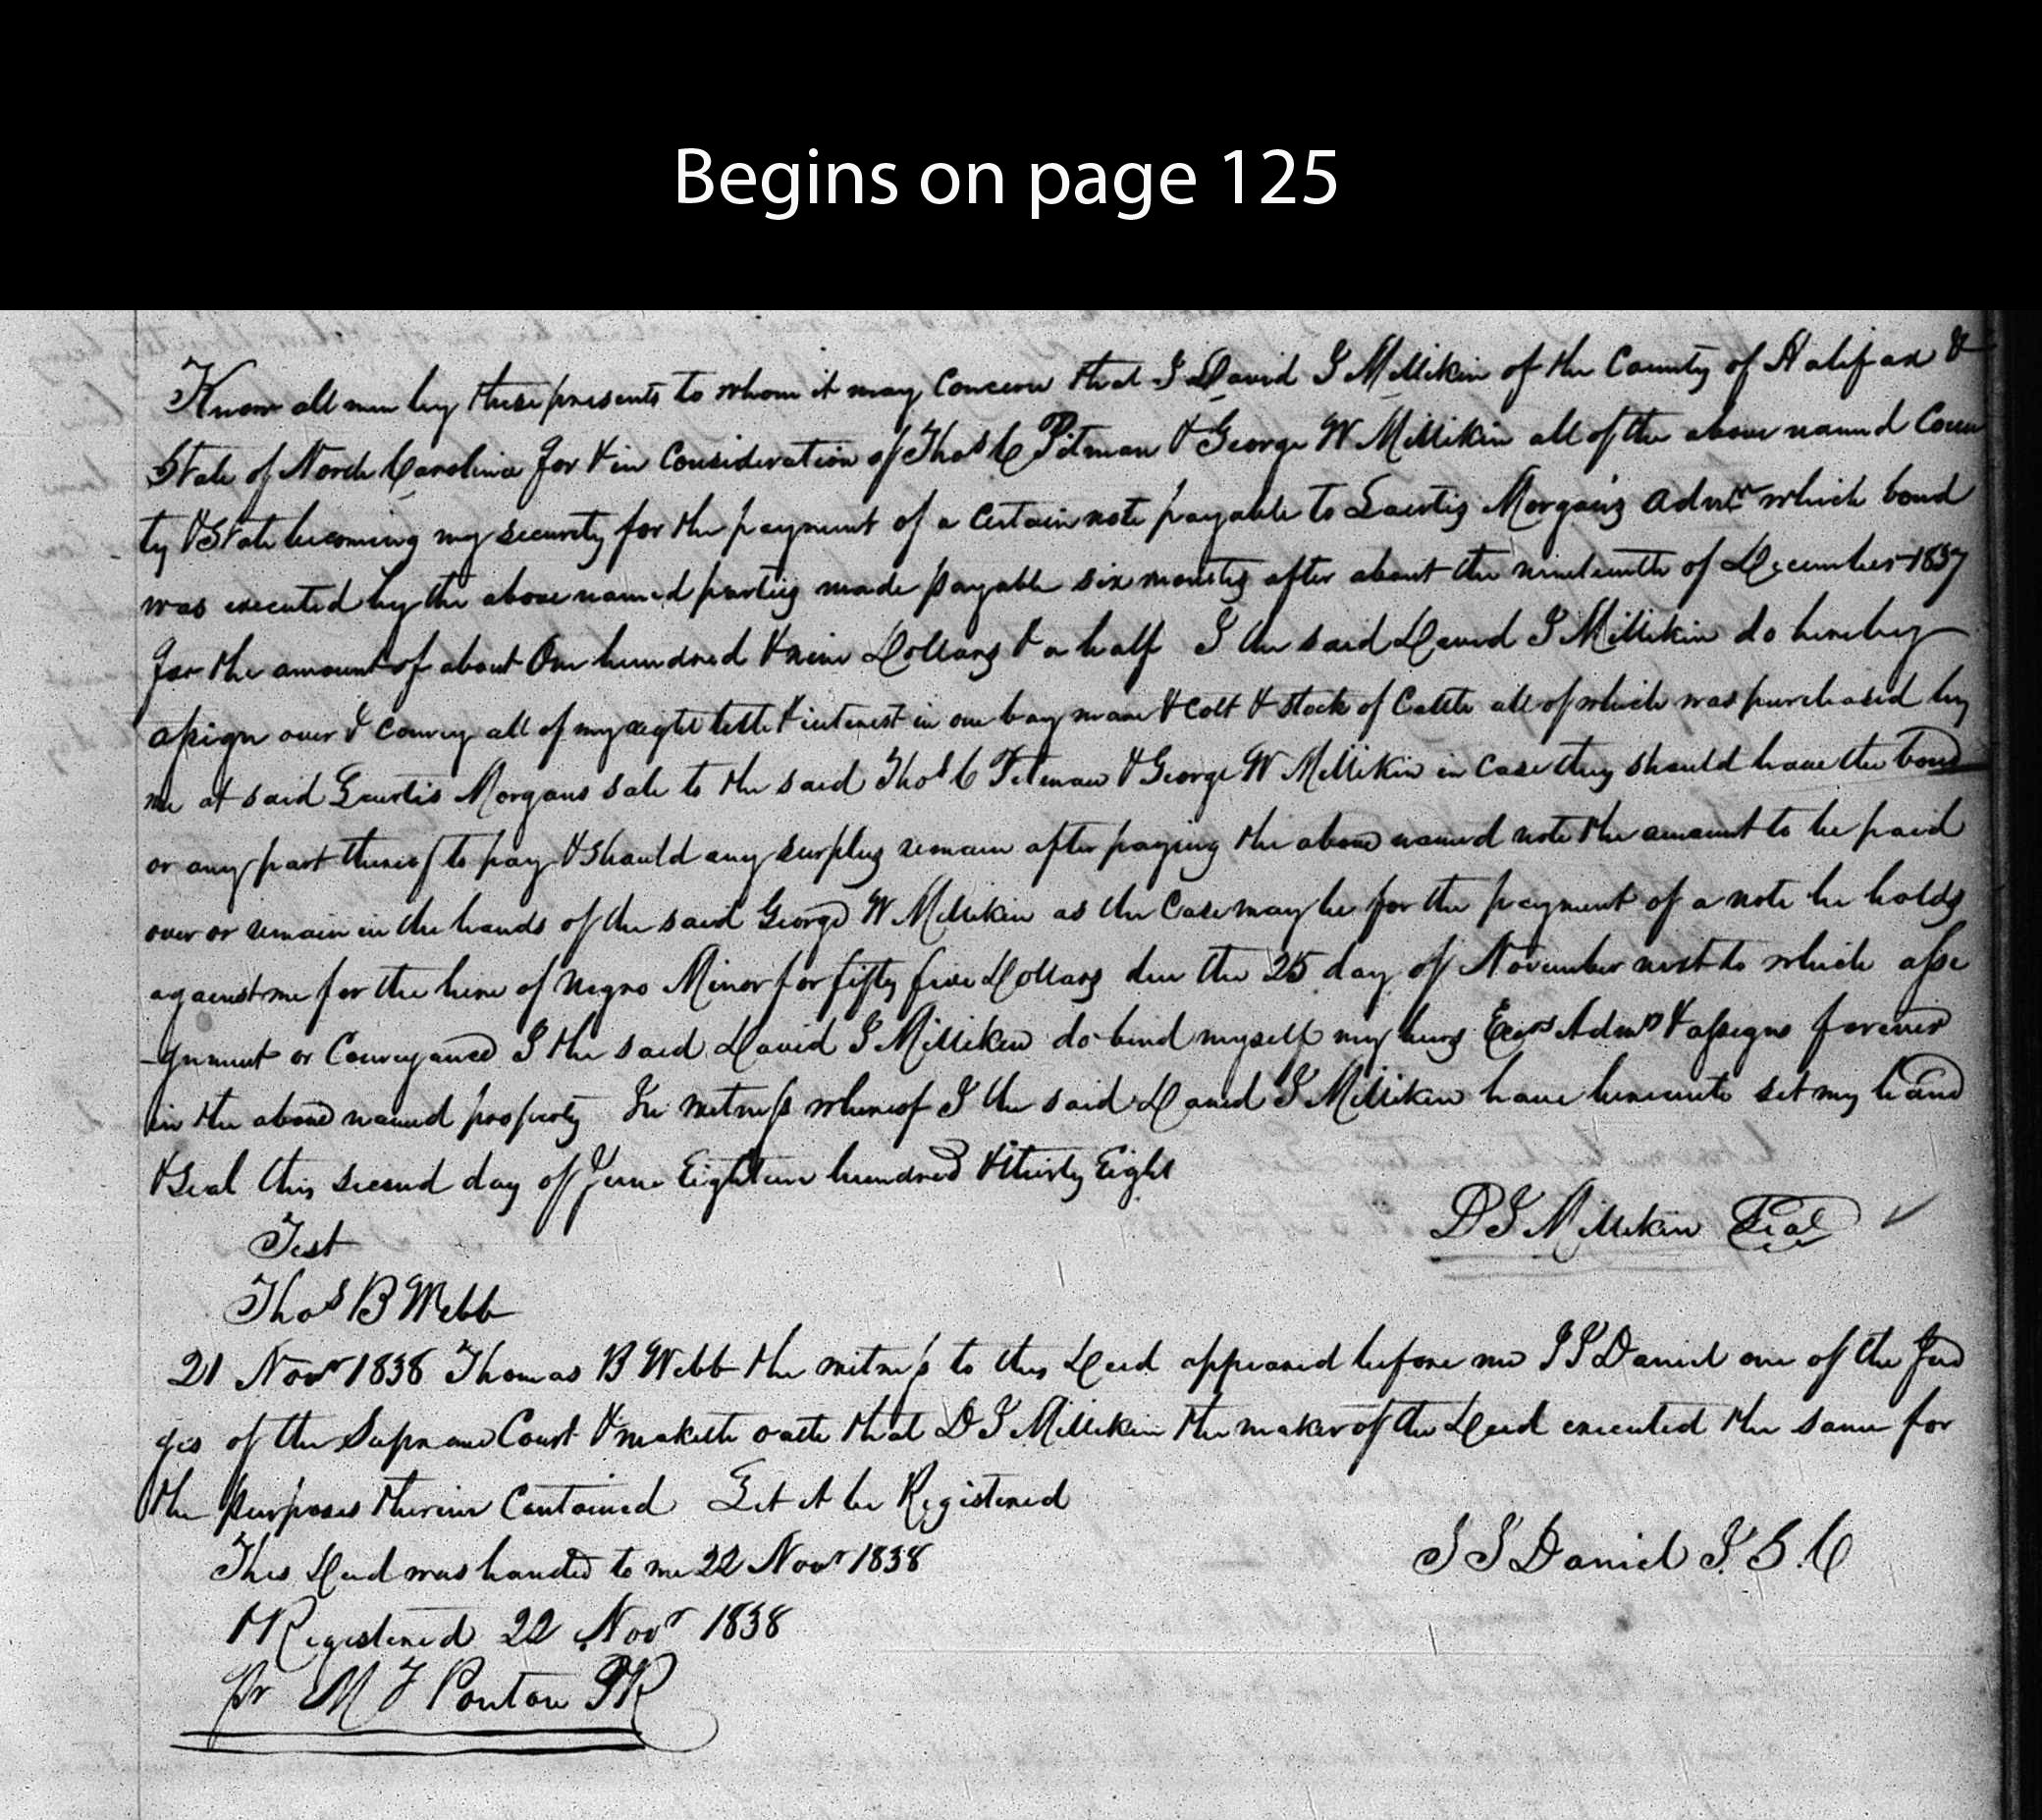 Begins on page 125
Know all men by these presents to whom it may Concern that I David I Millikin of the County of Halifax &
State of North Carolina for & in Consideration of Thos C Pitman & George W Millikin all of the above named Coun
ty & State becoming my security for the payment of a Certain note payable to Morgans Admr which bond
was executed by the above named parties made payable six months after about the nineteenth of December 1837
for the amount of about One hundred & nine Dollars & a half I the said David I Millikin do hereby
assign over & Convey all of my right title & interest in one bay mare & Colt & Stock of Cattle all of which was purchased by
me at said Morgans sale to the said Thos C Pitman & George W Millikin in Case they should have the bond
or any part thereof to pay & should any surplus remain after paying the above named note the amount to be paid
over or remain in the hands of the said George W Millikin as the Case may be for the payment of a note he holds
against me for the hire of Negro Minor for fifty five Dollars due the 25 day of November next to which assi
-gnment or Conveyance I the said David I Millikin do bind myself my heirs Exors Admrs & assigns forever
in the above named property In witness whereof I the said David I Millikin have hereunto set my hand
& Seal this second day of June Eighteen hundred & thirty Eight
D I Millikin Seal
Test
Thos B Webb
21 Novr 1838 Thomas B Webb the witness to this Deed appeared before me J J Daniel one of the Jud
ges of the Supreme Court & maketh oath that D I Millikin the maker of the Deed executed the same for
the purposes therein Contained Let it be Registered
J J Daniel J. S. C
This Deed was handed to me 22 Novr 1838
& Registered 22 Novr 1838
Pr M F Ponton PR